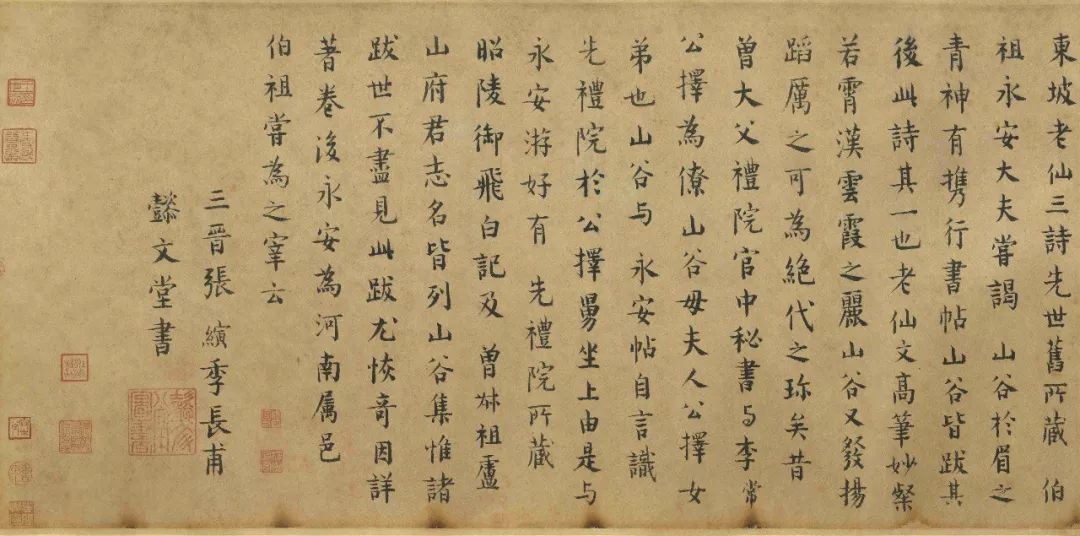 東坡老仙三詩先世舊所藏 伯
祖永安大夫嘗謁 山谷於眉之
青神有携行書帖山谷皆跋其
後此詩其一也老仙文高筆妙粲
若霄漢雲霞之麗山谷又發揚
蹈厲之可為絕代之珎矣昔
曾大父禮院官中秘書与李常
公擇為僚山谷母夫人公擇女
弟也山谷与 永安帖自言識
先禮院於公擇舅坐上由是与
永安游好有 先禮院所藏
昭陵御飛白記及 曾叔祖盧
山府君志名皆列山谷集惟諸
跋世不盡見此跋尤恢奇因詳
著卷後永安為河南属邑
伯祖嘗為之宰云
三晋張 縯季長甫
懿文堂書